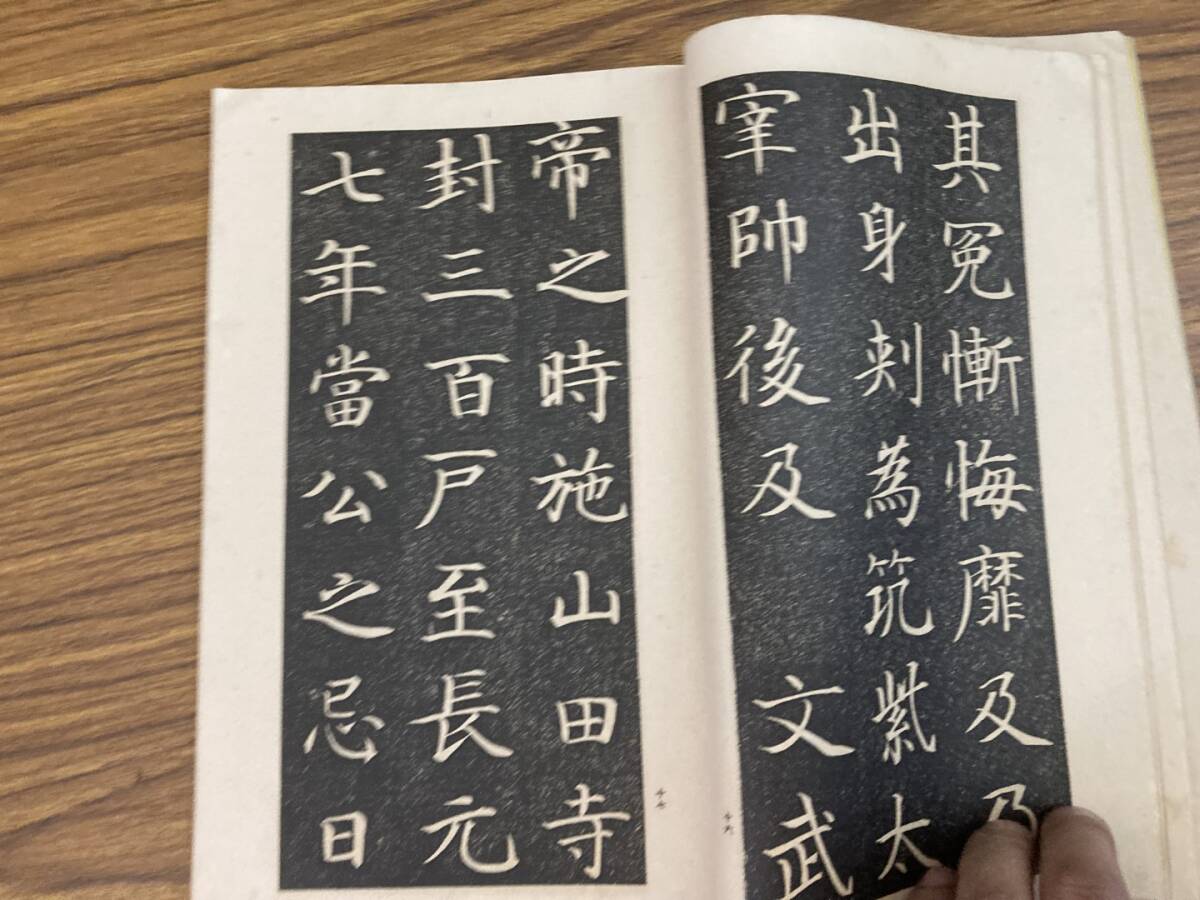 其冤慚悔靡及乃
出身刾為筑紫太
宰帥後及　文武
十六
帝之時施山田寺
封三百戸至長元
七年當公之忌日
十七